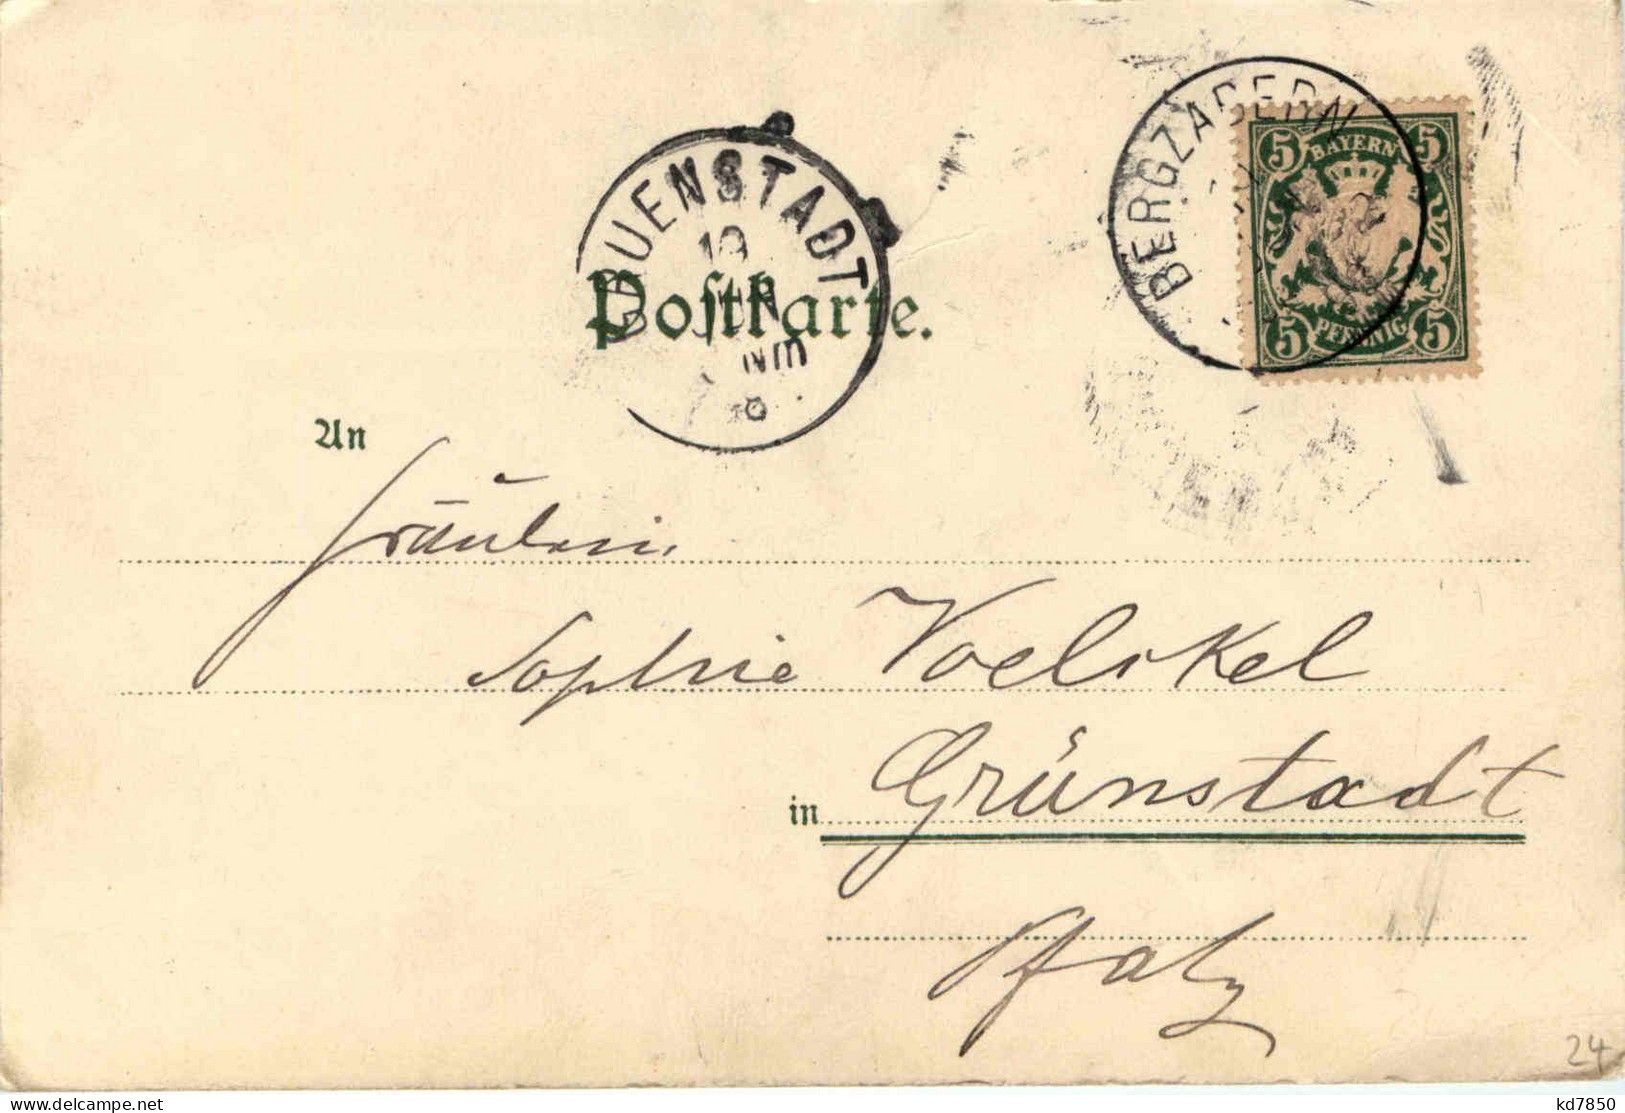 BERGZABERN
5 BAYERN 5
5 PFENNIG 5
UENSTADT
19
Postkarte.
NM
8
An
Fräulein
Sophie Voelckel
in Grünstadt
Pfalz
24
delcampe.net
kd7850